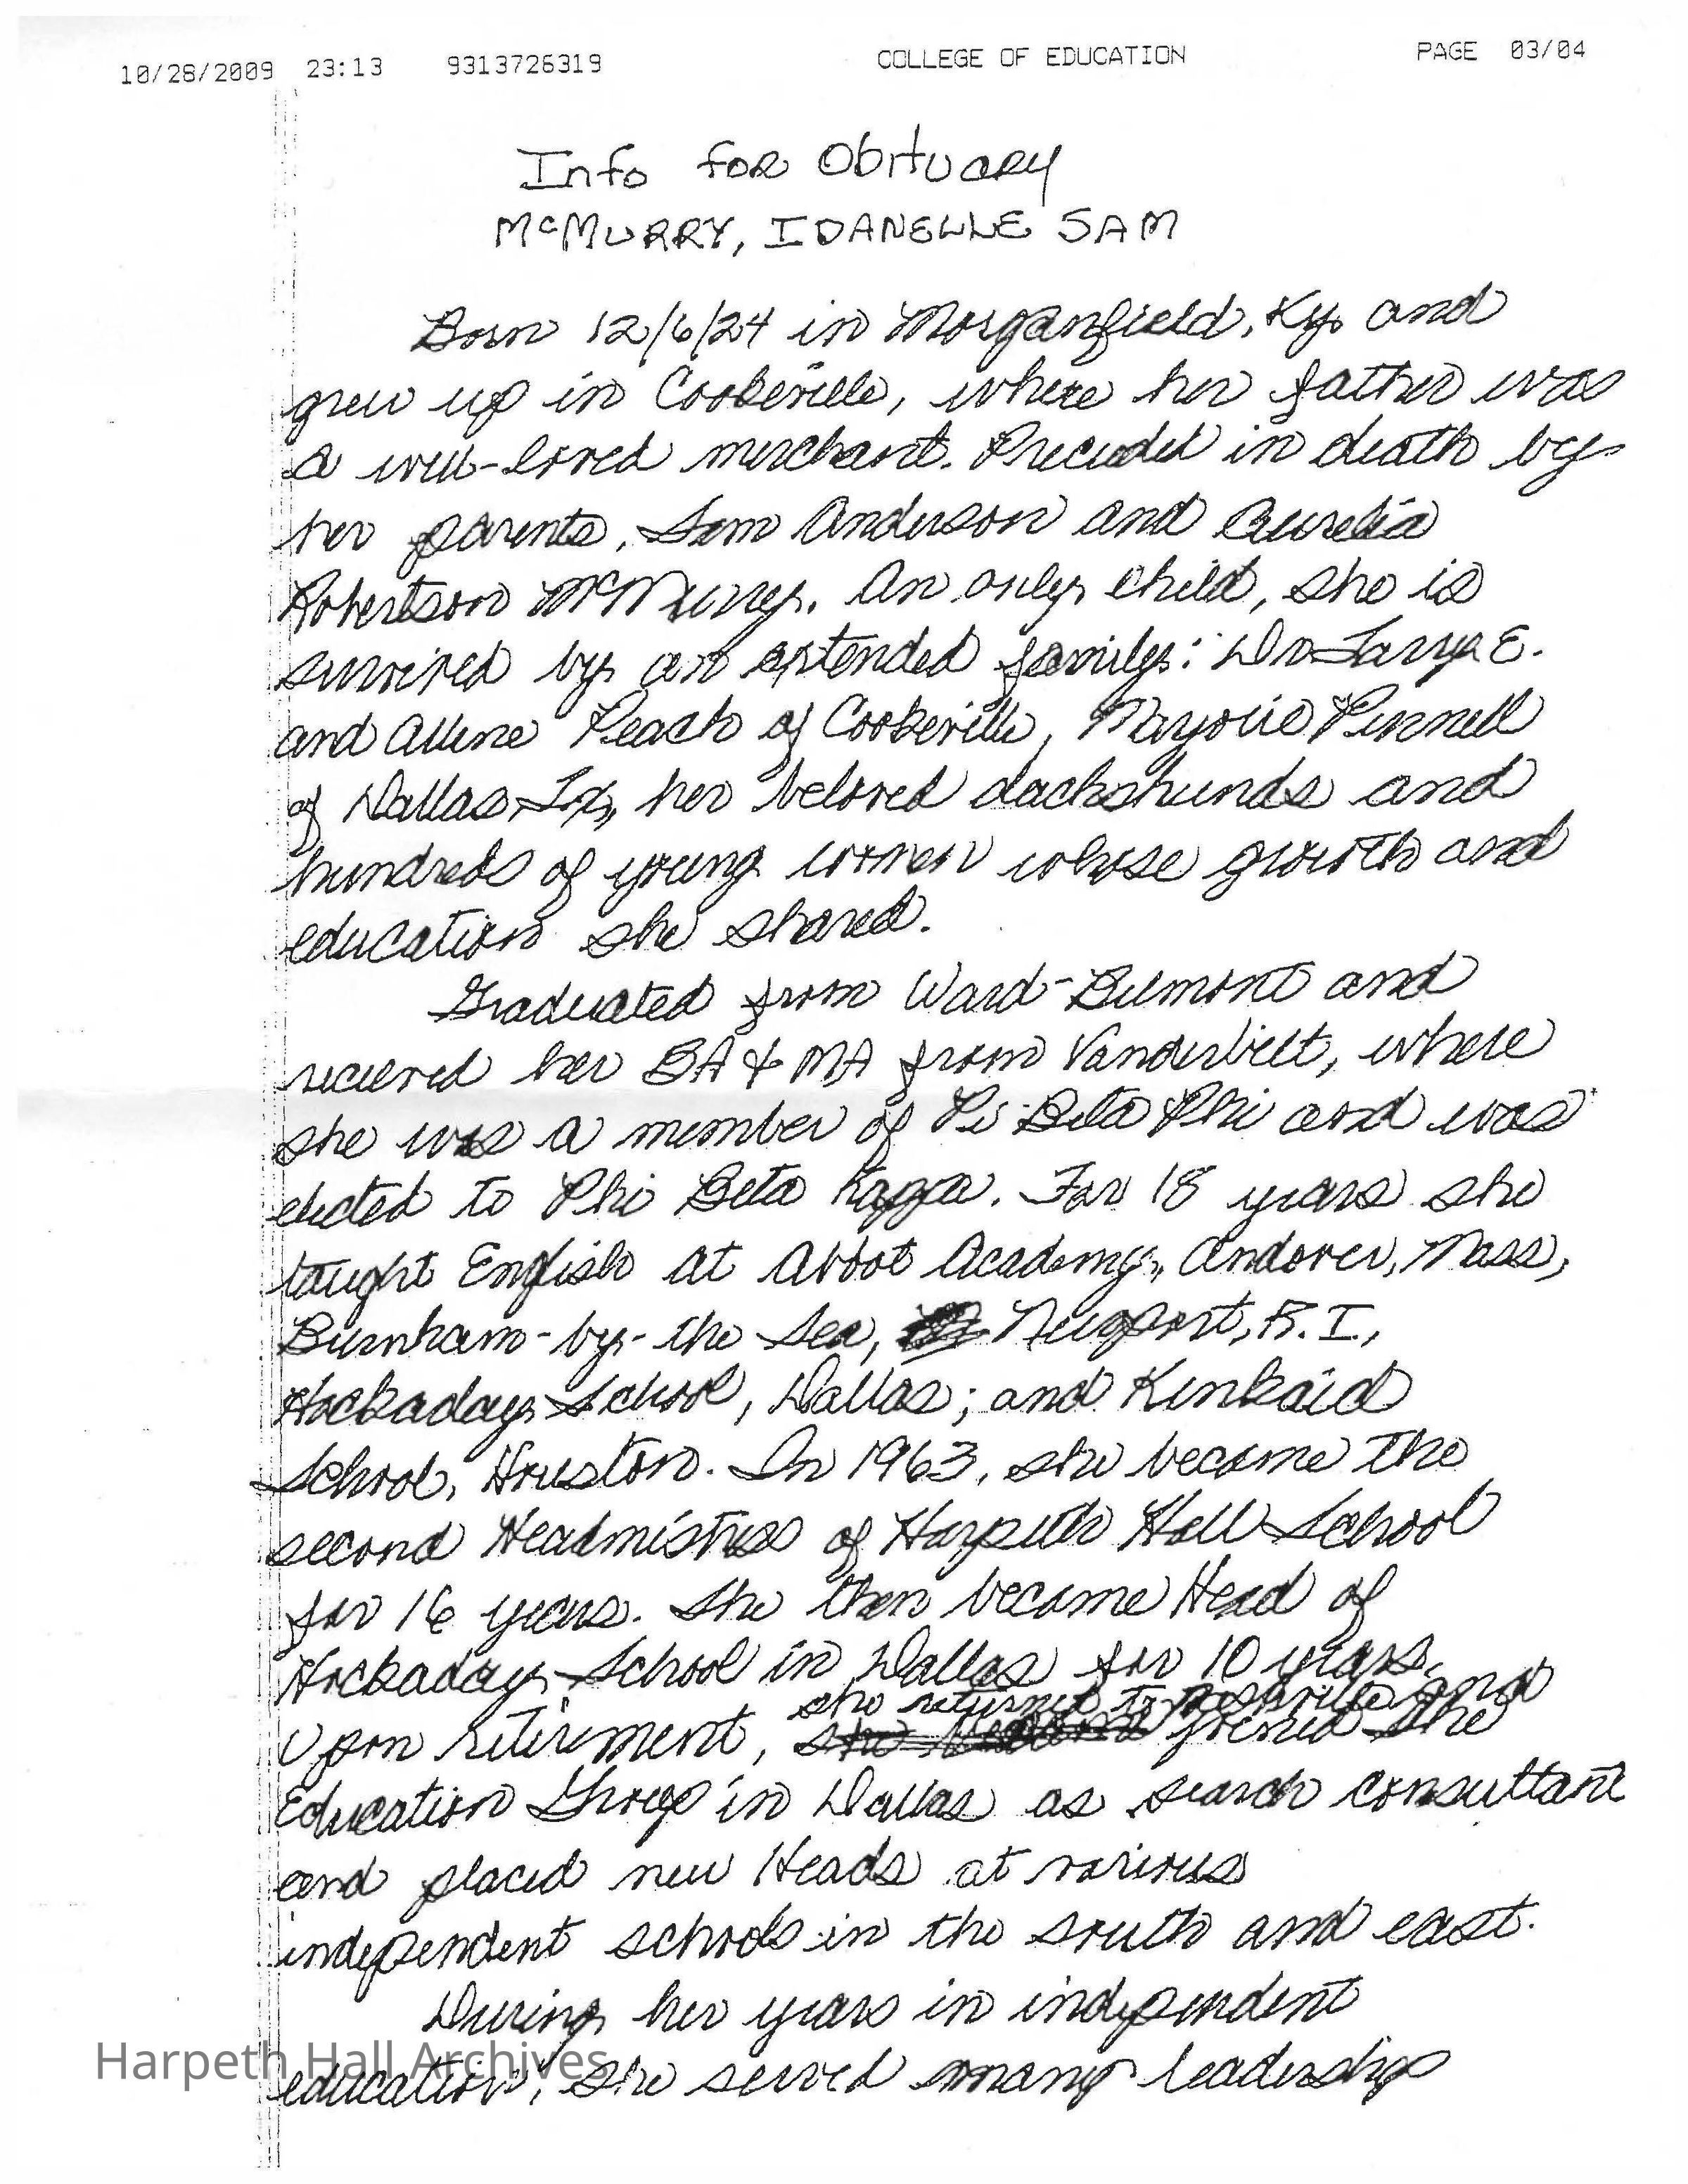 10/28/2009 23:13 9313726319 COLLEGE OF EDUCATION PAGE 03/04
Info for Obituary
McMURRY, IDANELLE SAM
Born 12/6/24 in Morganfield, Ky. and
grew up in Cookeville, where her father was
a well-loved merchant. Preceeded in death by
her parents, Sam Anderson and Aurelia
Robertson McMurry. An only child, she is
survived by an extended family: Dr. Larry E.
and Allene Peach of Cookeville, Marjorie Pennell
of Dallas Tx, her beloved dachshunds and
hundreds of young women whose growth and
education she shared.
Graduated from Ward-Belmont and
received her BA & MA from Vanderbilt, where
she was a member of Pi Beta Phi and was
elected to Phi Beta Kappa. For 18 years she
taught English at Abbot Academy, Andover, Mass,
Burnham-by-the Sea, Newport, R.I,
Hockaday School, Dallas; and Kinkaid
School, Houston. In 1963, she became the
second Headmistress of Harpeth Hall School
for 16 years. She then became Head of
Hockaday School in Dallas for 10 years.
she returned to Nashville and
Upon retirement, she joined the
Education Group in Dallas as search consultant
and placed new Heads at various
independent schools in the south and east.
During her years in independent
education, she served many leadership
Harpeth Hall Archives